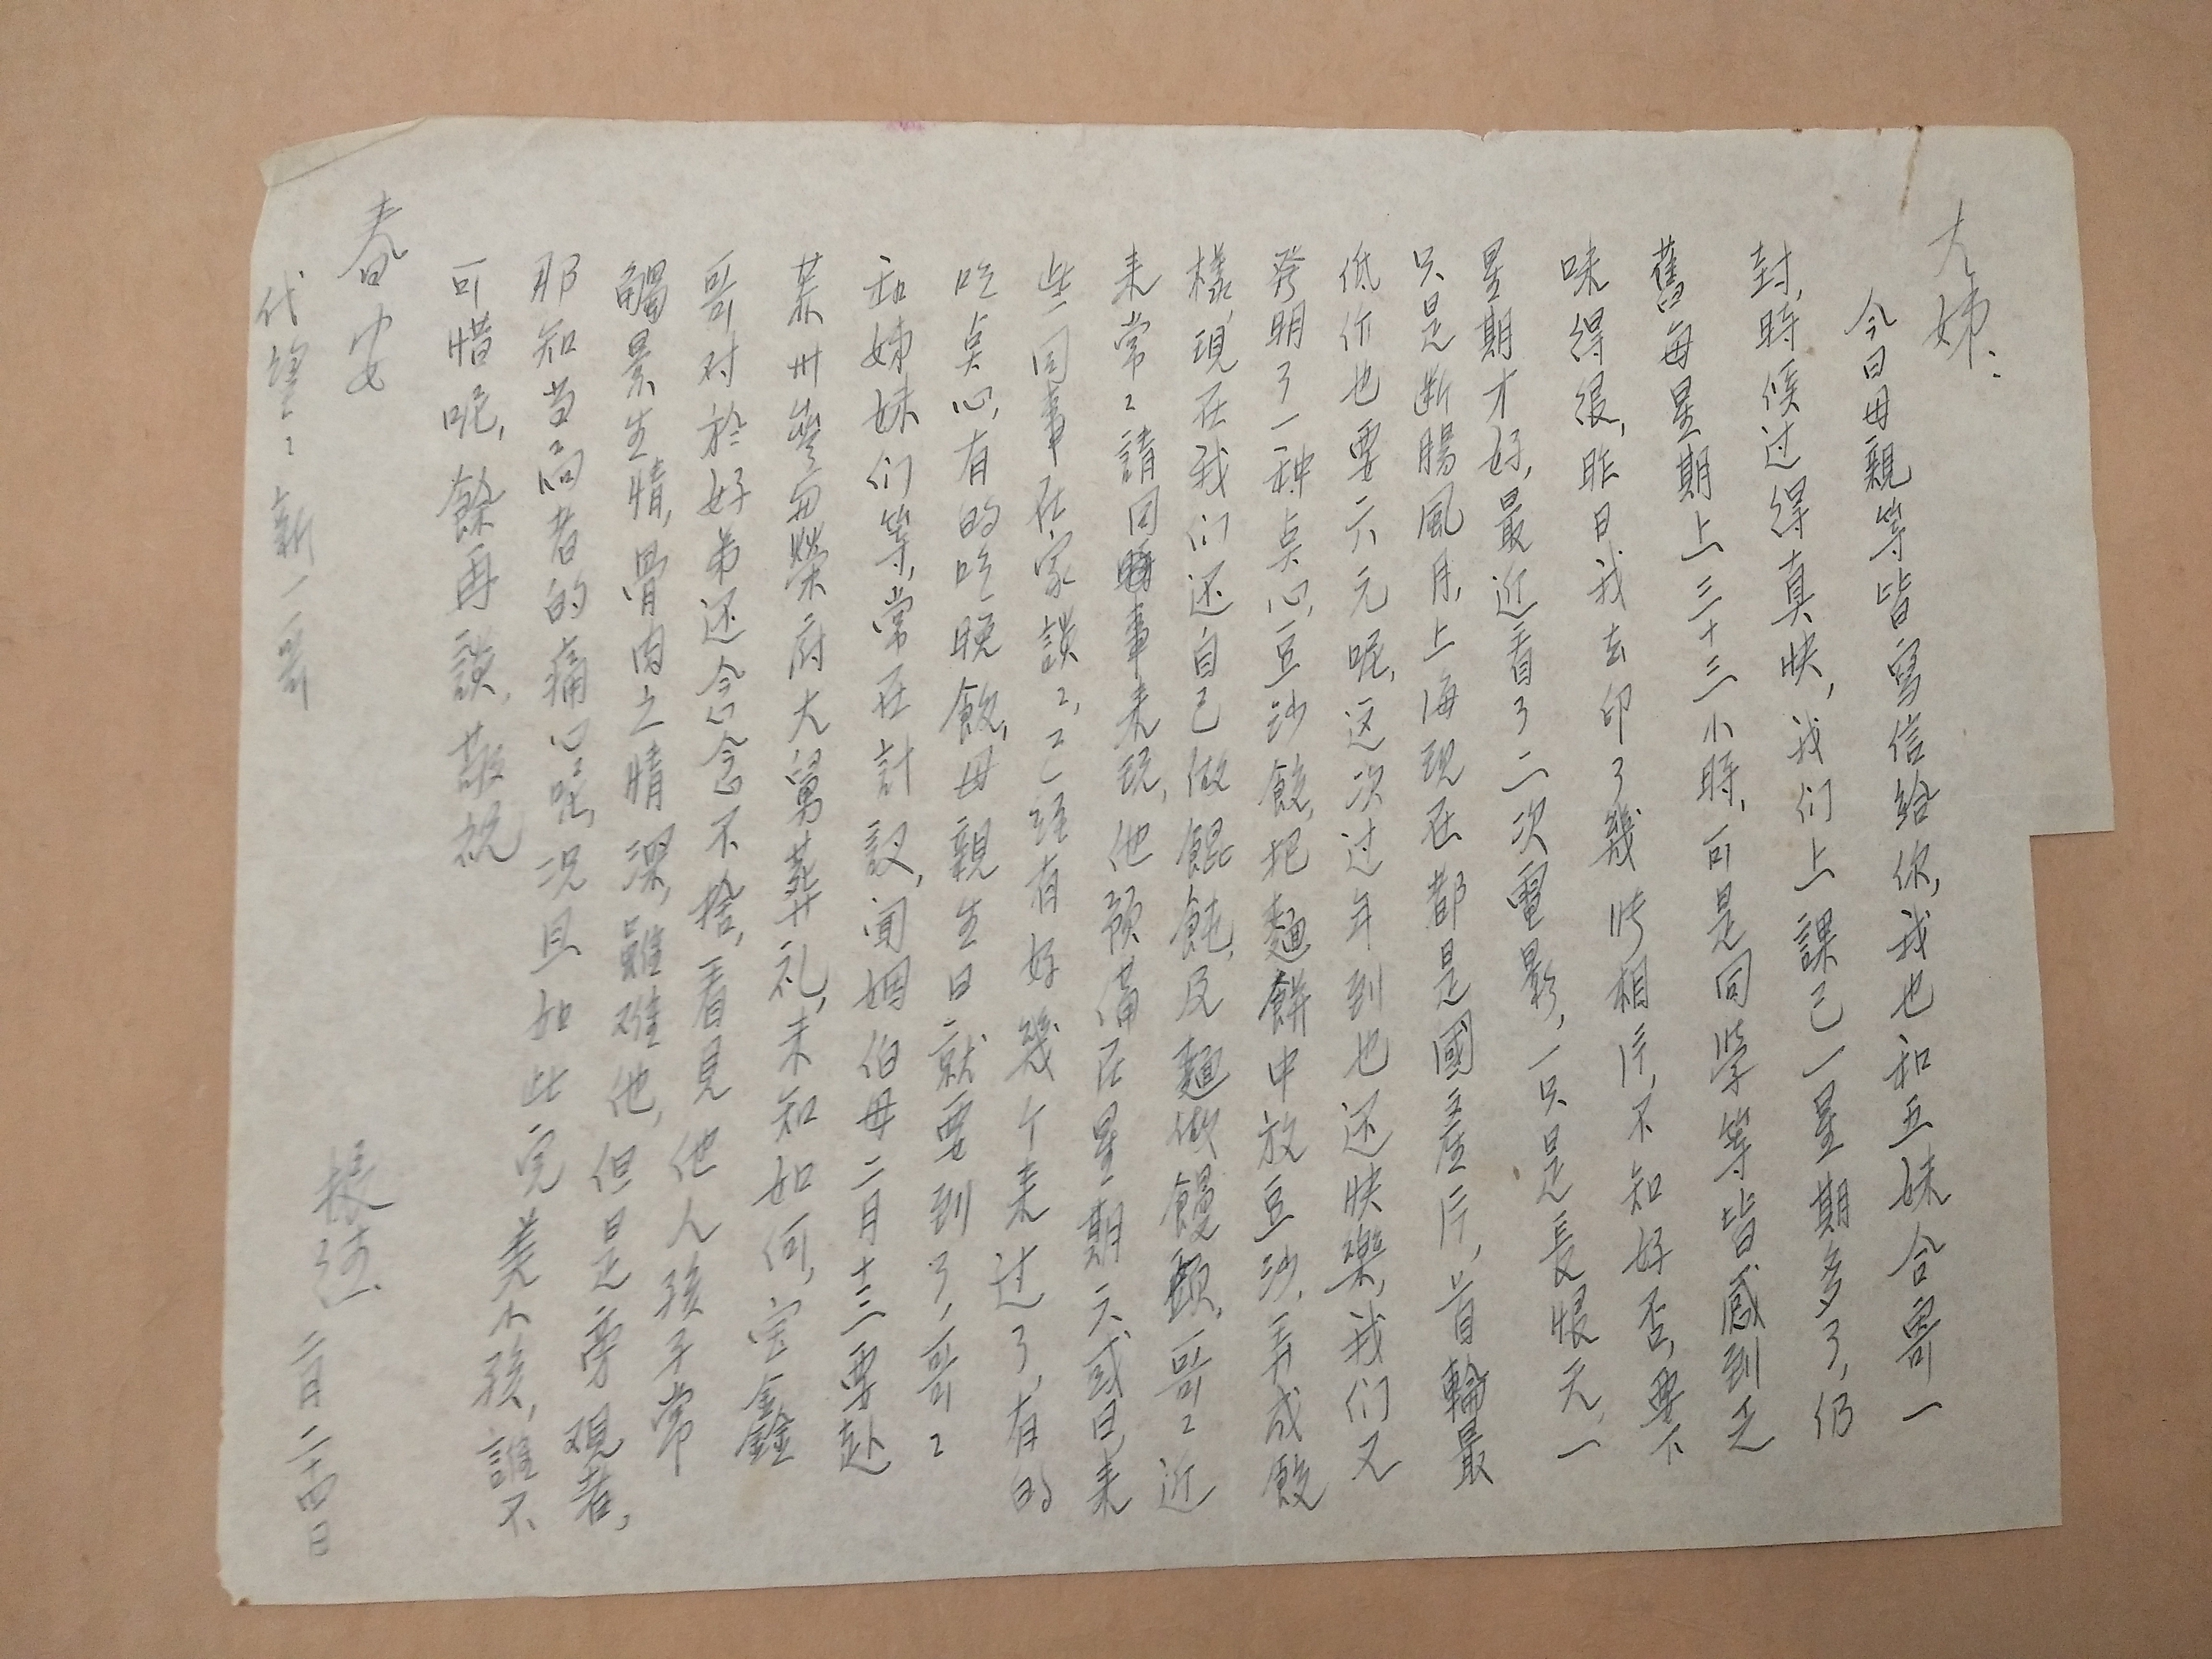 大姊：
今日母親等皆寫信給你，我也和五妹合寄一
封，時候过得真快，我们上課已一星期多了，仍
舊每星期上三十三小時，可是同學等皆感到乏
味得很，昨日我去印了幾張相片，不知好否，要下
星期才好，最近看了二次電影，一只是長恨天，一
只是断腸風月，上海现在都是國產片，首輪最
低价也要六元呢，这次过年到也还快樂，我们又
發明了一种点心，豆沙餃，把麵餅中放豆沙，弄成餃
樣，現在我们还自己做餛飩，及麵做饅頭，哥〻近
来常〻請同事来玩，他預備在星期六或日来
些同事在家談〻，已經有好幾个来过了，有的
吃点心，有的吃晚飯，母親生日就要到了，哥〻
和姊妹们等，常在計議，闻姻伯母二月十三要赴
蘇州 榮府大舅葬礼，未知如何，宝鑫
哥对於好弟还念念不捨，看見他人孩子常
觸景生情，骨肉之情深，雖难他，但是旁观者，
那知当局者的痛心呢，况且如此完美小孩，誰不
可惜呢，餘再談，敬祝
春安
二月二十四日
代望〻新一哥